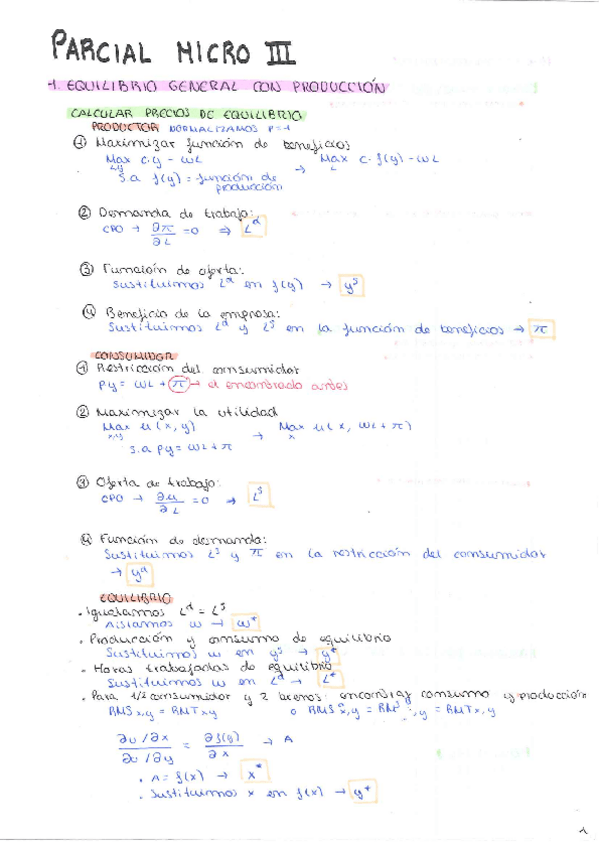 PARCIAL MICRO III
1. EQUILIBRIO GENERAL CON PRODUCCIÓN
CALCULAR PRECIOS DE EQUILIBRIO
PRODUCTOR NORMALIZAMOS P=1
① Maximizar función de beneficios
Max c·y - ωL → Max c·f(y) - ωL
L,y L
s.a f(y) = función de
producción
② Demanda de trabajo:
CPO → ∂π/∂L = 0 ⇒ Lᵈ
③ Función de oferta:
Sustituimos Lᵈ en f(y) → yˢ
④ Beneficio de la empresa:
Sustituimos Lᵈ y Lˢ en la función de beneficios → π
CONSUMIDOR
① Restricción del consumidor
py = ωL + π → el encontrado antes
② Maximizar la utilidad
Max u(x, y) → Max u(x, ωL + π)
x,y x
s.a py = ωL + π
③ Oferta de trabajo:
CPO → ∂u/∂L = 0 → Lˢ
④ Función de demanda:
Sustituimos Lˢ y π en la restricción del consumidor
→ yᵈ
EQUILIBRIO
· Igualamos Lᵈ = Lˢ
Aislamos ω → ω*
· Producción y consumo de equilibrio
Sustituimos ω en yˢ → y*
· Horas trabajadas de equilibrio
Sustituimos ω en Lᵈ → L*
· Para 1/2 consumidor y 2 bienes: encontrar consumo y producción
RMS x,y = RMT x,y o RMS x,y = RMS x,y = RMT x,y
∂u/∂x / ∂u/∂y = ∂f(y)/∂x → A
· A = f(x) → x*
· Sustituimos x en f(x) → y*
1